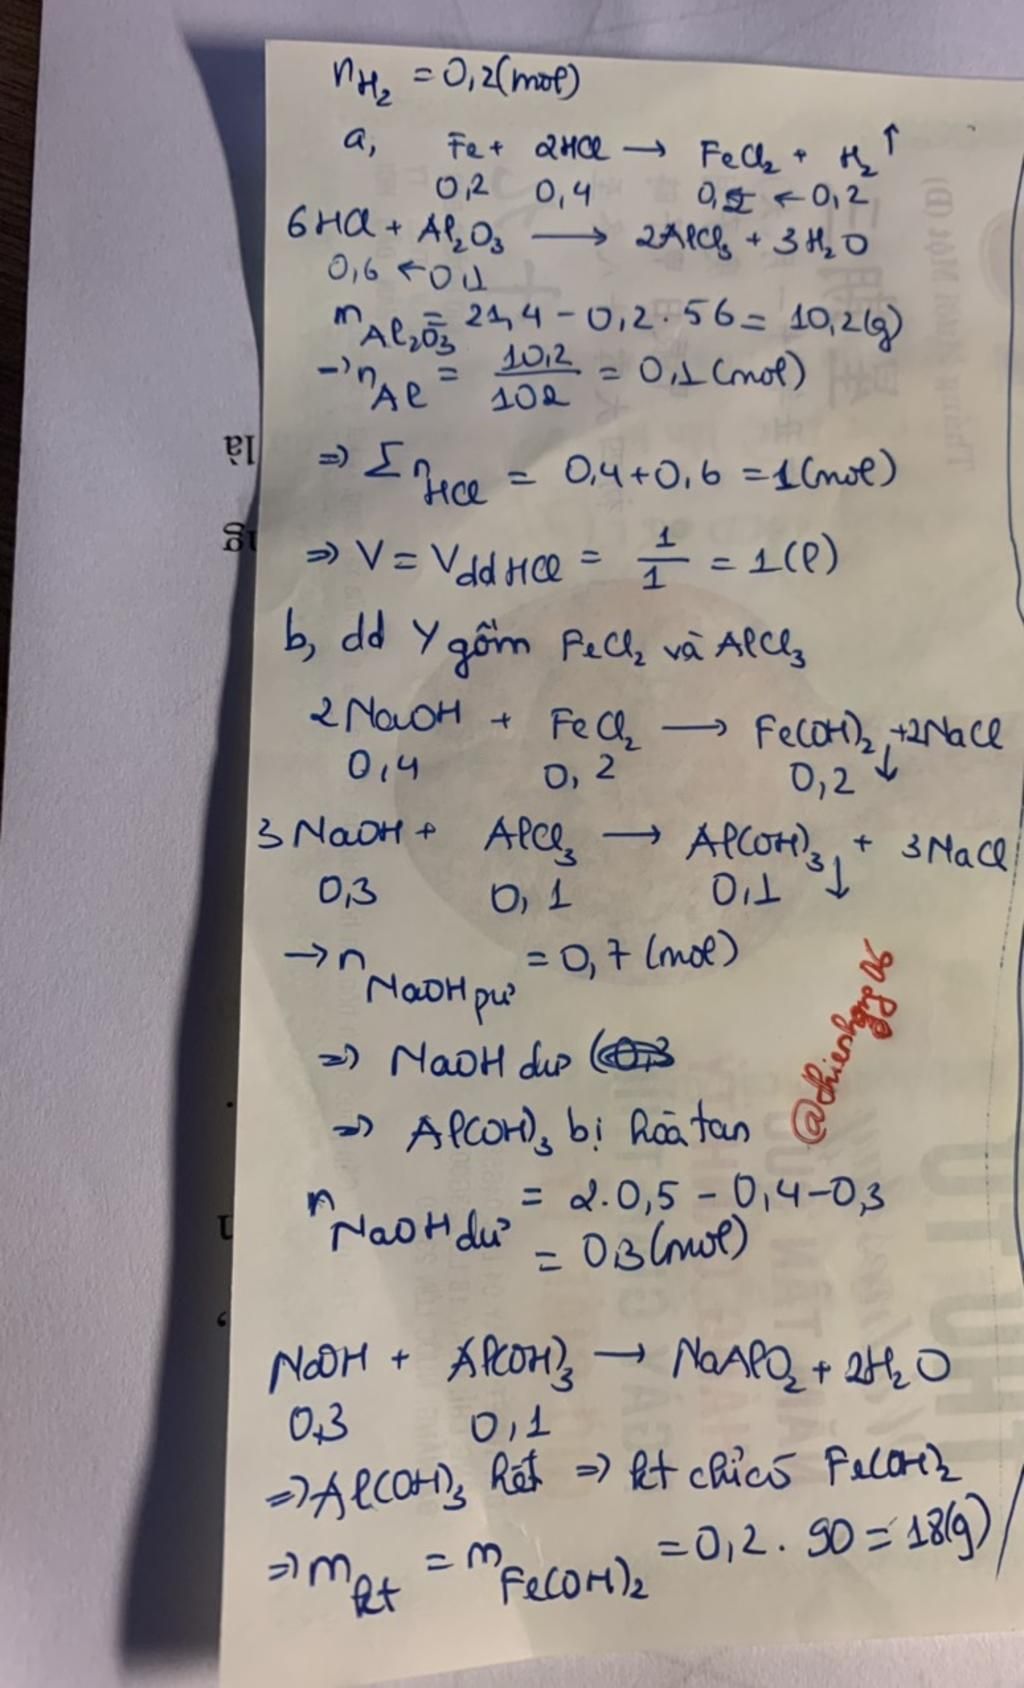 nH₂ = 0,2(mol)
a, Fe + 2HCl → FeCl₂ + H₂↑
0,2 0,4 0,2 ← 0,2
6HCl + Al₂O₃ → 2AlCl₃ + 3H₂O
0,6 ← 0,1
mAl₂O₃ = 21,4 - 0,2 . 56 = 10,2(g)
→ nAl = 10,2/102 = 0,1(mol)
⇒ Σ nHCl = 0,4 + 0,6 = 1(mol)
⇒ V = Vdd HCl = 1/1 = 1(l)
b, dd Y gồm FeCl₂ và AlCl₃
2NaOH + FeCl₂ → Fe(OH)₂↓ + 2NaCl
0,4 0,2 0,2
3NaOH + AlCl₃ → Al(OH)₃↓ + 3NaCl
0,3 0,1 0,1
→ nNaOH pư = 0,7 (mol)
⇒ NaOH dư
⇒ Al(OH)₃ bị hoà tan
nNaOH dư = 2.0,5 - 0,4 - 0,3
= 0,3(mol)
NaOH + Al(OH)₃ → NaAlO₂ + 2H₂O
0,3 0,1
⇒ Al(OH)₃ hết ⇒ kt chỉ có Fe(OH)₂
⇒ mkt = mFe(OH)₂ = 0,2 . 90 = 18(g)
là